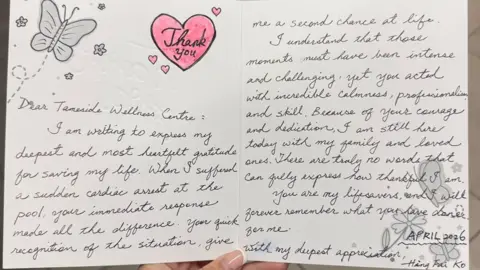 Thank
you
Dear Tameside Wellness Centre:
I am writing to express my
deepest and most heartfelt gratitude
for saving my life. When I suffered
a sudden cardiac arrest at the
pool, your immediate response
made all the difference. Your quick
recognition of the situation, give
me a second chance at life.
I understand that those
moments must have been intense
and challenging, yet you acted
with incredible calmness, professionalism
and skill. Because of your courage
and dedication, I am still here
today with my family and loved
ones. There are truly no words that
can fully express how thankful I am
You are my lifesavers, and I will
forever remember what you have done
for me.
APRIL 2026
With my deepest appreciation,